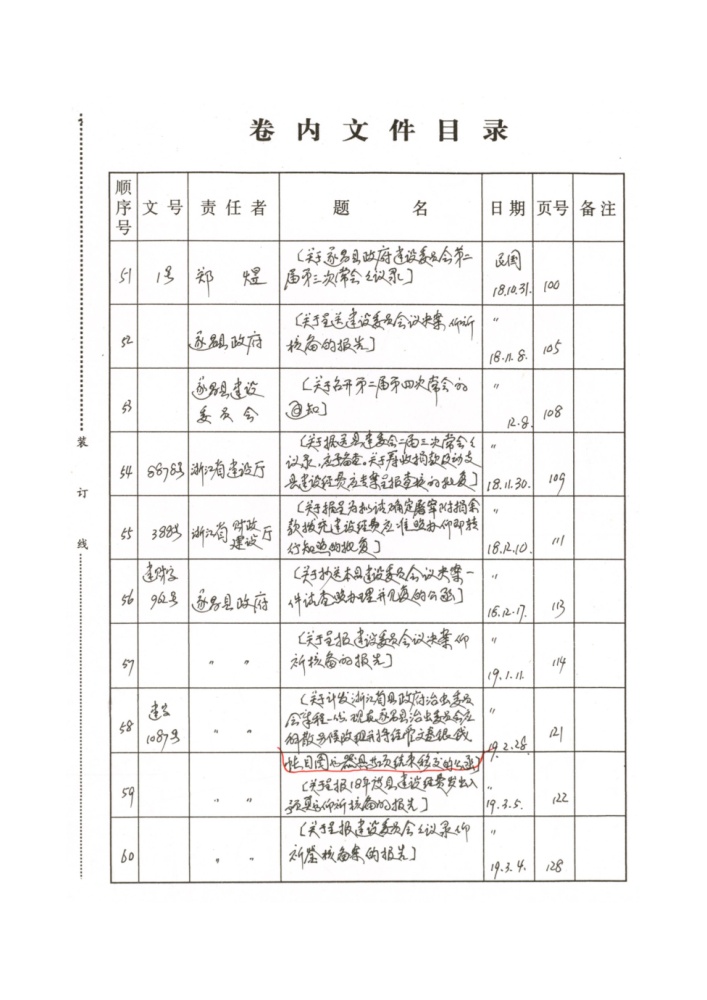 卷内文件目录
顺序号 文号 责任者 题名 日期 页号 备注
51 1号 郑煜 [关于遂昌县政府建设委员会第二届第三次常会议录] 民国18.10.31. 100
52 遂昌县政府 [关于呈送建设委员会议决案仰祈核备的报告] 〃 18.11.8. 105
53 遂昌县建设委员会 [关于召开第二届第四次常会的通知] 〃 12.8. 108
54 8878号 浙江省建设厅 [关于报送县建委会二届三次常会议录,应予备查,关于 县建设经费应专案呈报查核的批复] 〃 18.11.30. 109
55 388号 浙江省财政建设厅 款拨充建设经费应准照办仰即转行知照的批复] 〃 18.12.10. 111
56 建财字962号 遂昌县政府 [关于抄送本县建设委员会议决案一件试查照办理并见复的公函] 〃 18.12.17. 113
57 〃 〃 [关于呈报建设委员会议决案仰祈核备的报告] 〃 19.1.11. 114
58 建字1087号 〃 〃 [关于计发浙江省县政府治虫委员会章程一份,现在遂昌县治虫委员会应 〃 19.2.28. 121
帐目图记器具 结束移交的公函]
59 〃 〃 [关于呈报18年度县建设经费岁出入 仰祈核备的报告] 〃 19.3.5. 122
60 〃 〃 [关于呈报建设委员会议录仰祈鉴核备案的报告] 〃 19.3.4. 128
装订线